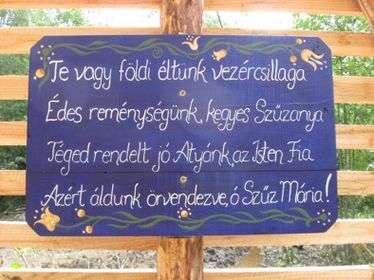 Te vagy földi éltünk vezércsillaga
Édes reménységünk, kegyes Szűzanya
Téged rendelt jó Atyánk, az Isten Fia
Azért áldunk örvendezve, ó Szűz Mária!